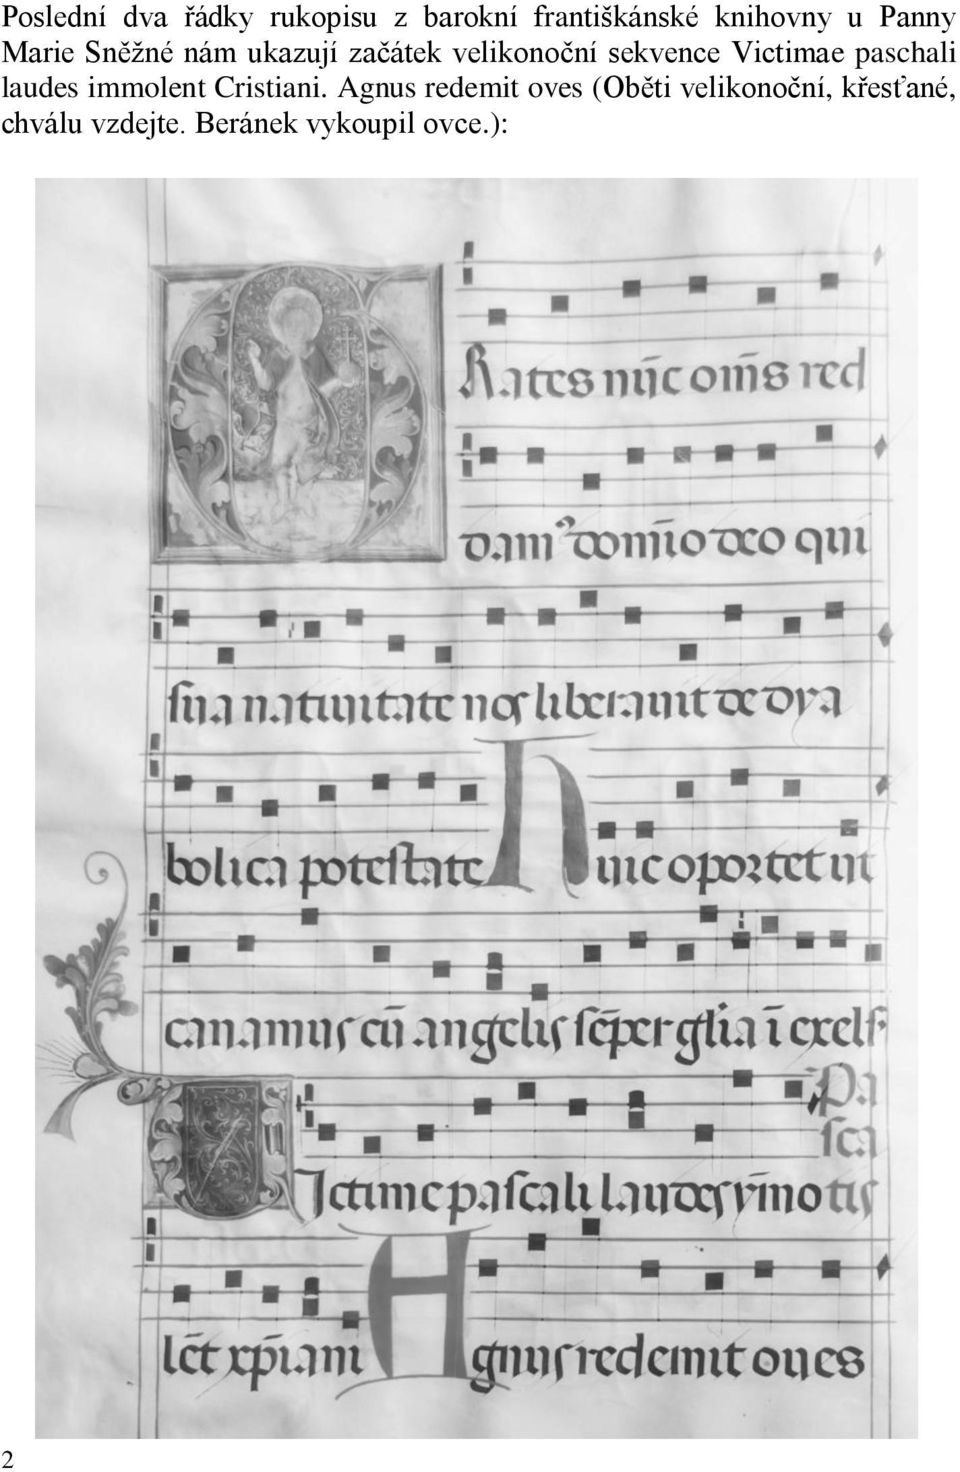 Poslední dva řádky rukopisu z barokní františkánské knihovny u Panny
Marie Sněžné nám ukazují začátek velikonoční sekvence Victimae paschali
laudes immolent Cristiani. Agnus redemit oves (Oběti velikonoční, křesťané,
chválu vzdejte. Beránek vykoupil ovce.):
Rates nūc om̄s red
dam⁹ domīo deo qui
sua natiuitate nos liberauit de dya
bolica potestate huic oportet ut
canamus cū angelis sēper glīa ī excels
Pa
sca
Ictime pascali laudes ym̄o tis
lēt xp̄iani Agnus redemit oues
2